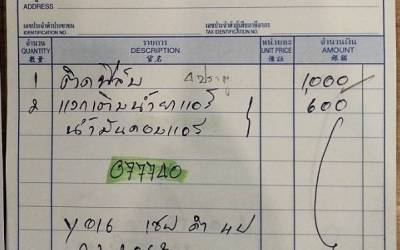 เลขประจำตัวประชาชน เลขประจำตัวผู้เสียภาษีอากร
IDENTIFICATION NO. TAX IDENTIFICATION NO.
จำนวน รายการ หน่วยละ จำนวนเงิน
QUANTITY DESCRIPTION UNIT PRICE AMOUNT
數量 貨名 價錢 銀額
1 ติดฟิล์ม 4 ประตู 1,000
2 แวกเติมน้ำยาแอร์ 600
น้ำมันคอมแอร์
077740